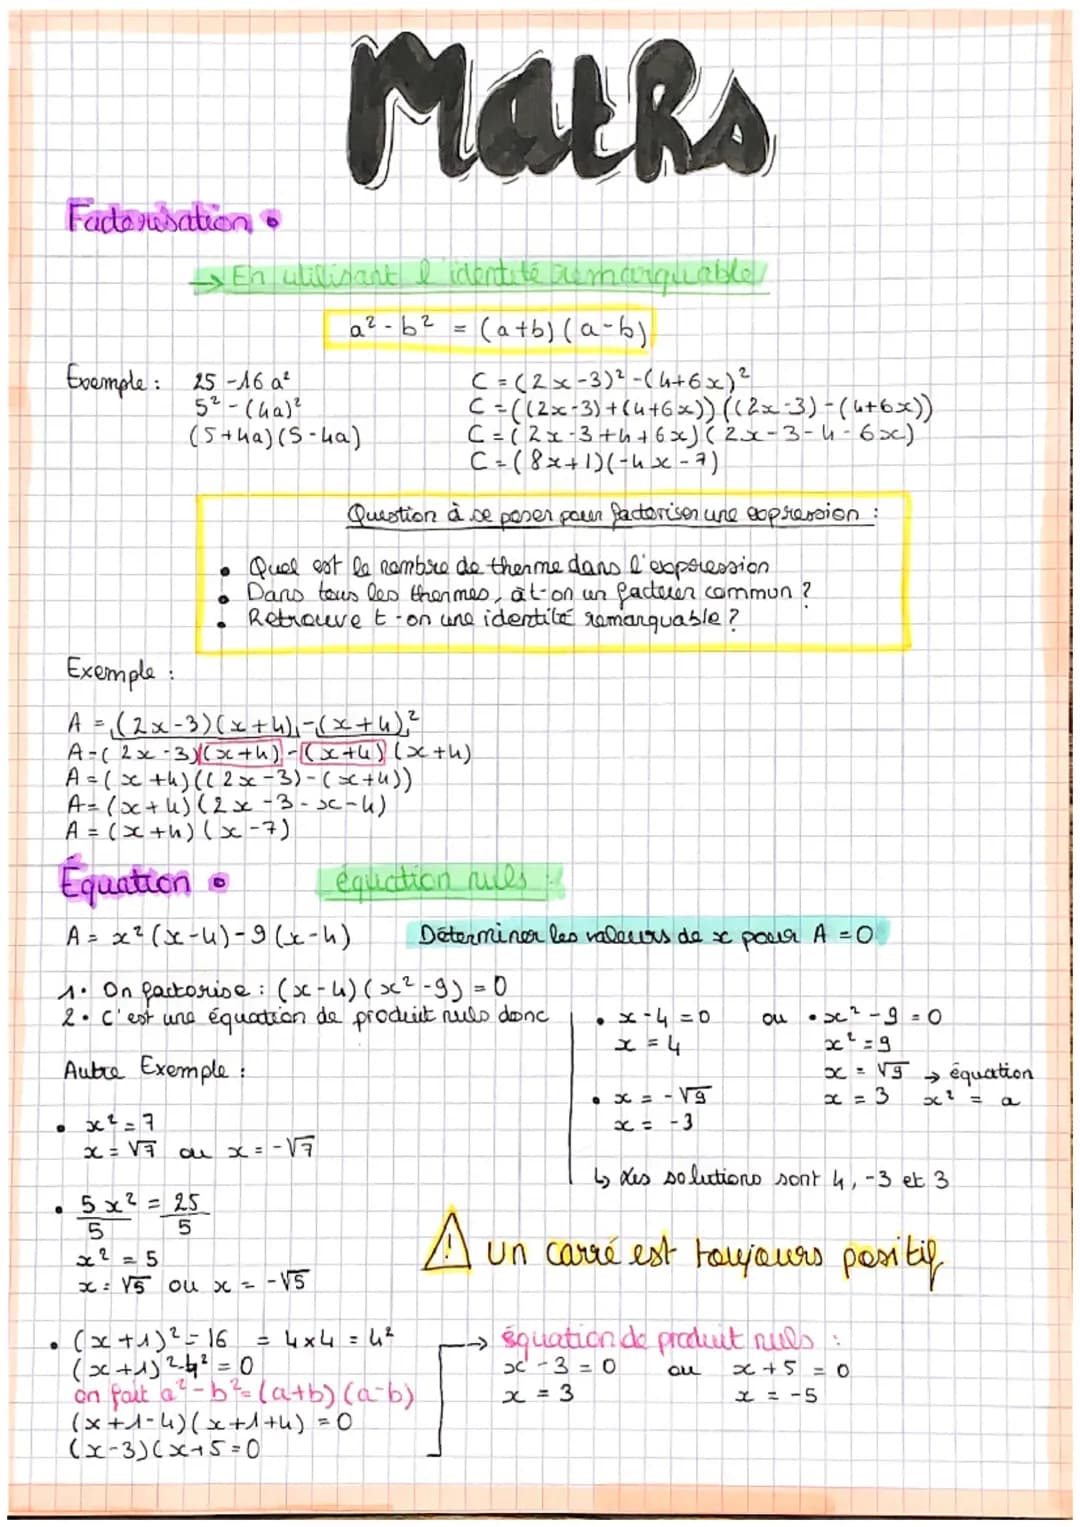 Maths
Factorisation •
→ En utilisant l'identité remarquable
a² - b² = (a+b)(a-b)
Exemple : 25 - 16a²
5² - (4a)²
(5+4a)(5-4a)
C = (2x-3)² - (4+6x)²
C = ((2x-3)+(4+6x))((2x-3)-(4+6x))
C = (2x-3+4+6x)(2x-3-4-6x)
C = (8x+1)(-4x-7)
Question à se poser pour factoriser une expression :
• Quel est le nombre de therme dans l'expression
• Dans tous les thermes, àt-on un facteur commun ?
• Retrouve t-on une identité remarquable ?
Exemple :
A = (2x-3)(x+4)-(x+4)²
A = (2x-3)(x+4)-(x+4)(x+4)
A = (x+4)((2x-3)-(x+4))
A = (x+4)(2x-3-x-4)
A = (x+4)(x-7)
Équation • équation nuls :
A = x²(x-4)-9(x-4) Déterminer les valeurs de x pour A = 0
1. On factorise : (x-4)(x²-9) = 0
2. C'est une équation de produit nuls donc
• x-4 = 0 ou • x²-9 = 0
x = 4 x² = 9
x = √9 → équation
x = 3 x² = a
• x = -√9
x = -3
↳ Les solutions sont 4, -3 et 3
Autre Exemple :
• x² = 7
x = √7 ou x = -√7
• 5x² = 25
5 5
x² = 5
x = √5 ou x = -√5
⚠ un carré est toujours positif
• (x+1)² = 16 = 4×4 = 4²
(x+1)²-4² = 0
on fait a²-b² = (a+b)(a-b)
(x+1-4)(x+1+4) = 0
(x-3)(x+5=0
→ équation de produit nuls :
x-3 = 0 ou x+5 = 0
x = 3 x = -5